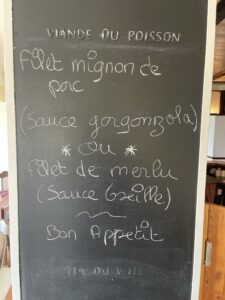 VIANDE OU POISSON
Filet mignon de
porc
(Sauce gorgonzola)
* ou *
Filet de merlu
(Sauce Oseille)
Bon Appetit